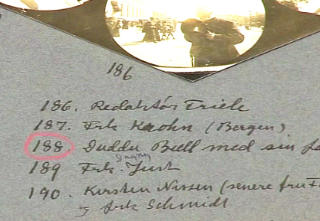 186
186. Redaktør Friele
187. Frk Krohn (Bergen)
188. Dudde Bull med sin
189 Frk. Just
190. Kirsten Nissen (senere fru
og frk Schmidt